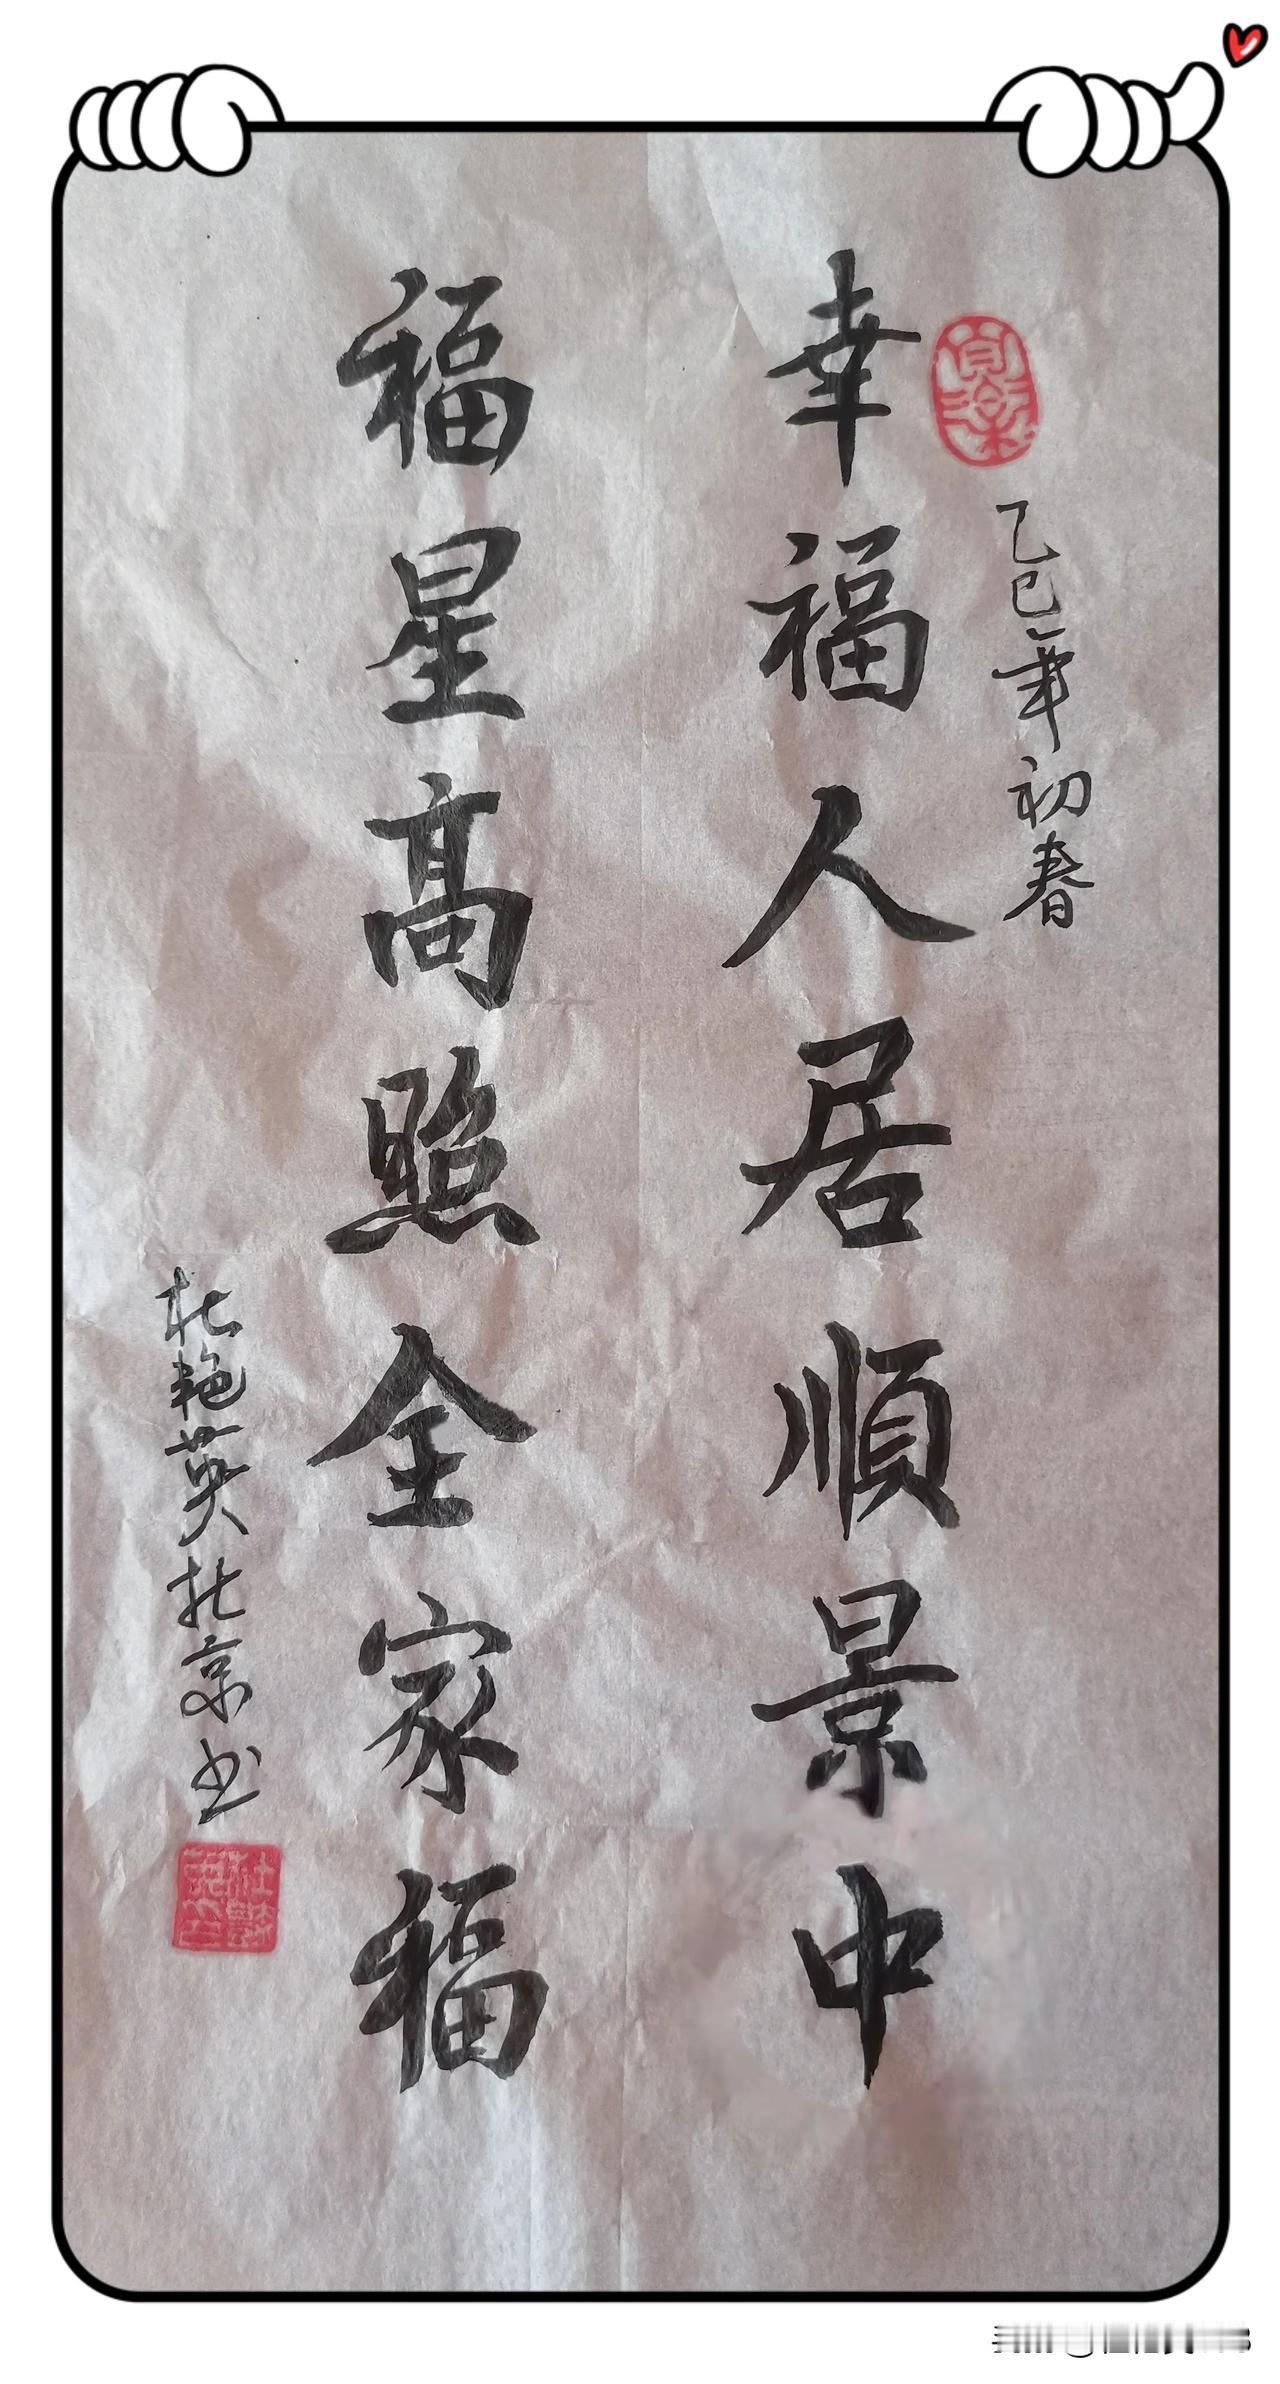 乙巳年初春
幸福人居順景中
福星高照全家福
杜艳英於京书